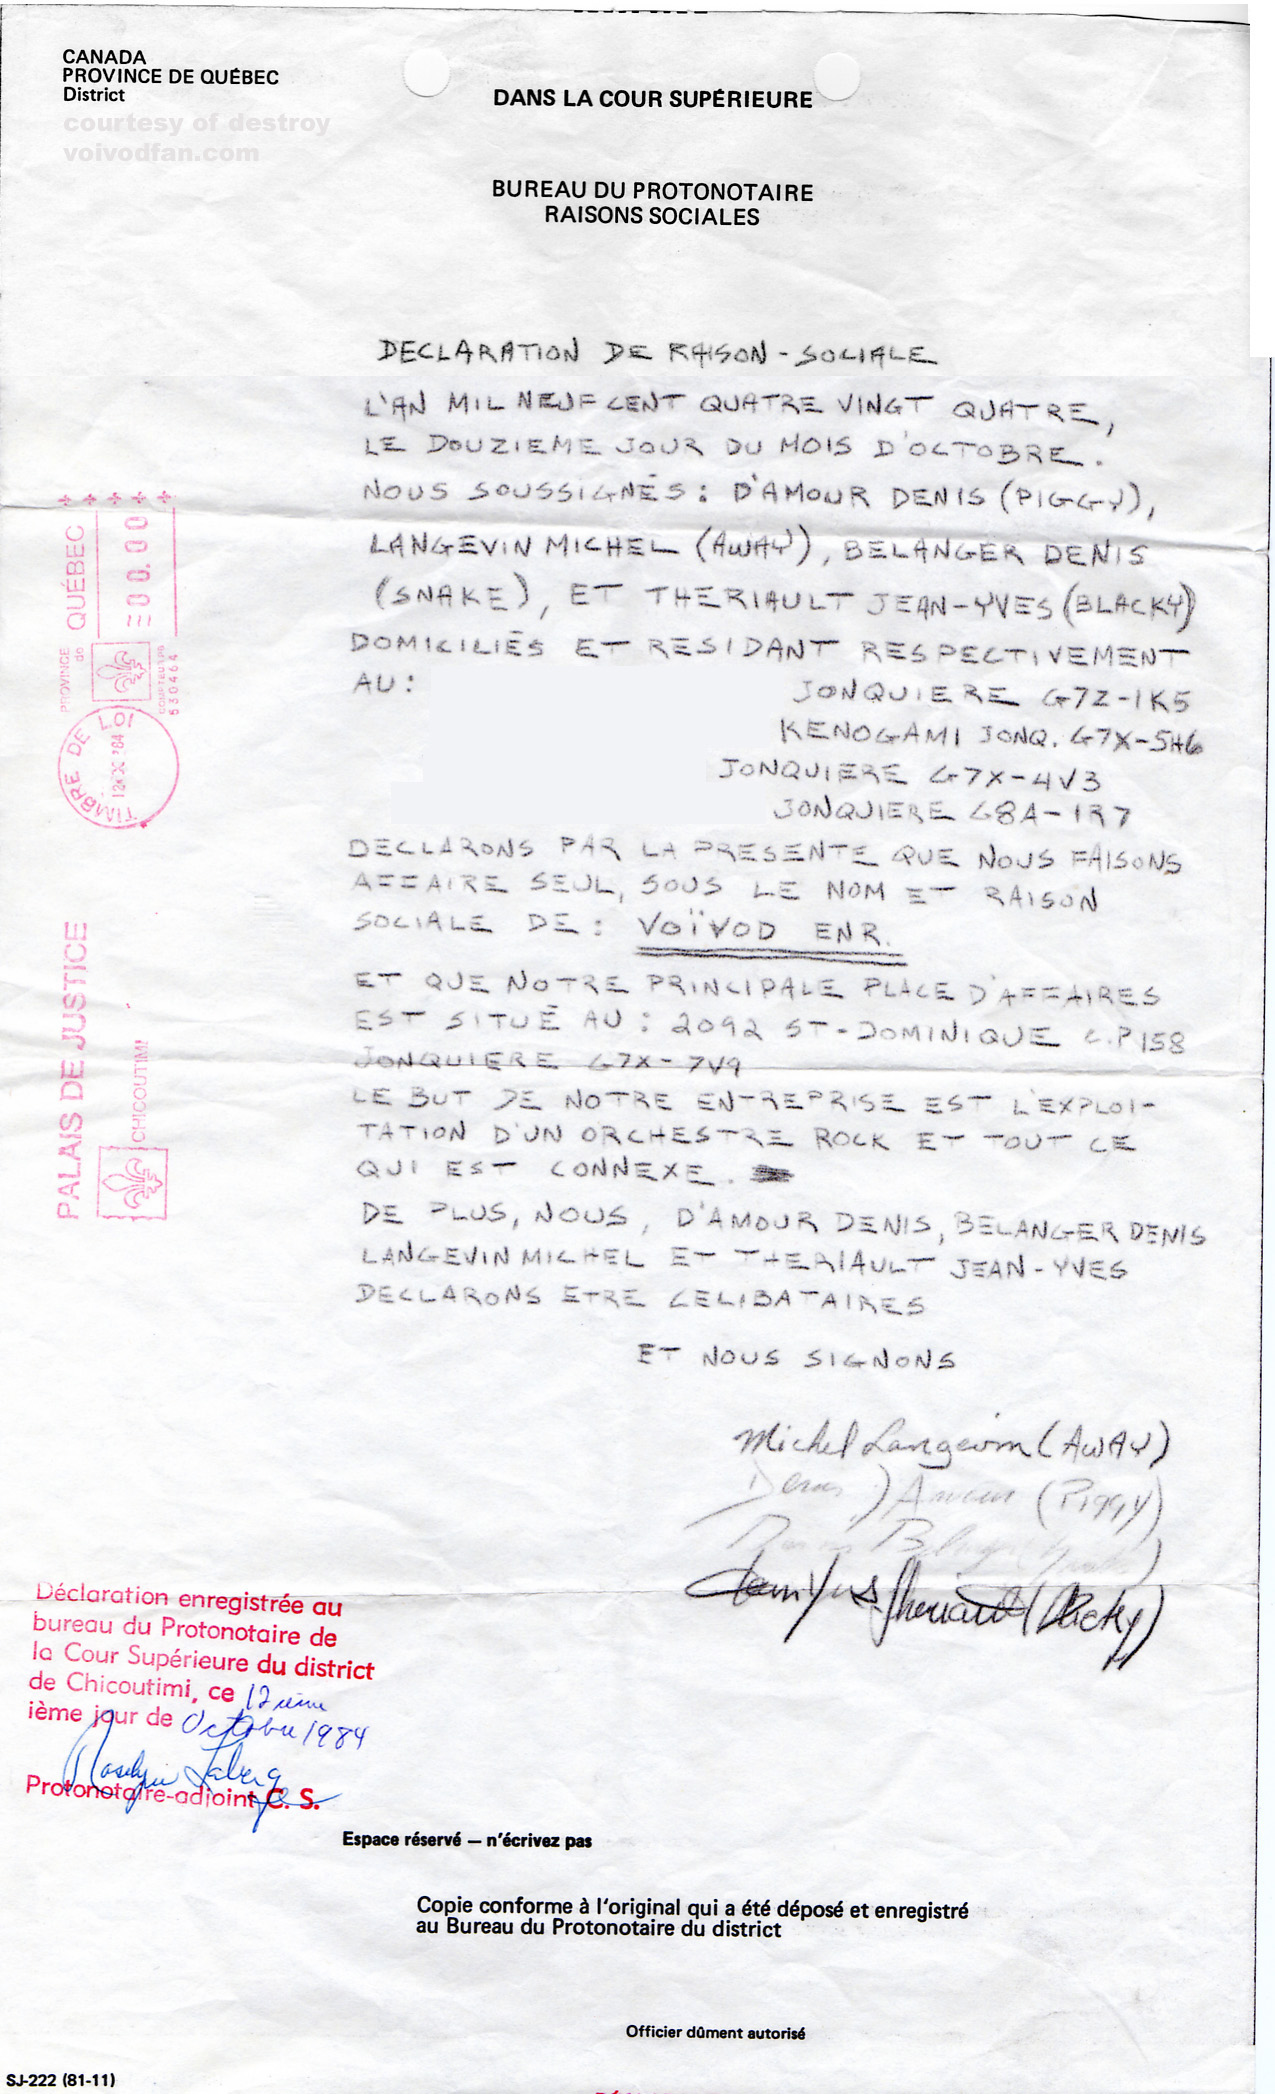 CANADA
PROVINCE DE QUÉBEC
District
courtesy of destroy
voivodfan.com
DANS LA COUR SUPÉRIEURE
BUREAU DU PROTONOTAIRE
RAISONS SOCIALES
DECLARATION DE RAISON-SOCIALE
L'AN MIL NEUF CENT QUATRE VINGT QUATRE,
LE DOUZIEME JOUR DU MOIS D'OCTOBRE.
NOUS SOUSSIGNÉS: D'AMOUR DENIS (PIGGY),
LANGEVIN MICHEL (AWAY), BELANGER DENIS
(SNAKE), ET THERIAULT JEAN-YVES (BLACKY)
DOMICILIÉS ET RESIDANT RESPECTIVEMENT
AU: JONQUIERE G7Z-1K5
KENOGAMI JONQ. G7X-5H6
JONQUIERE G7X-4V3
JONQUIERE G8A-1R7
DECLARONS PAR LA PRESENTE QUE NOUS FAISONS
AFFAIRE SEUL, SOUS LE NOM ET RAISON
SOCIALE DE: VOÏVOD ENR.
ET QUE NOTRE PRINCIPALE PLACE D'AFFAIRES
EST SITUÉ AU: 2092 ST-DOMINIQUE C.P 158
JONQUIERE G7X-7V9
LE BUT DE NOTRE ENTREPRISE EST L'EXPLOI-
TATION D'UN ORCHESTRE ROCK ET TOUT CE
QUI EST CONNEXE.
DE PLUS, NOUS, D'AMOUR DENIS, BELANGER DENIS
LANGEVIN MICHEL ET THERIAULT JEAN-YVES
DECLARONS ETRE CELIBATAIRES
ET NOUS SIGNONS
Michel Langevin (AWAY)
Denis D'Amour (Piggy)
Denis Belanger (Snake)
Jean Yves Theriault (Blacky)
PROVINCE de QUÉBEC
00.00
COMPTEUR PB
530464
TIMBRE DE LOI
12 OC '84
PALAIS DE JUSTICE
CHICOUTIMI
Déclaration enregistrée au
bureau du Protonotaire de
la Cour Supérieure du district
de Chicoutimi, ce 12 ième
ième jour de Octobre 1984
Protonotaire-adjoint C. S.
Espace réservé – n'écrivez pas
Copie conforme à l'original qui a été déposé et enregistré
au Bureau du Protonotaire du district
Officier dûment autorisé
SJ-222 (81-11)